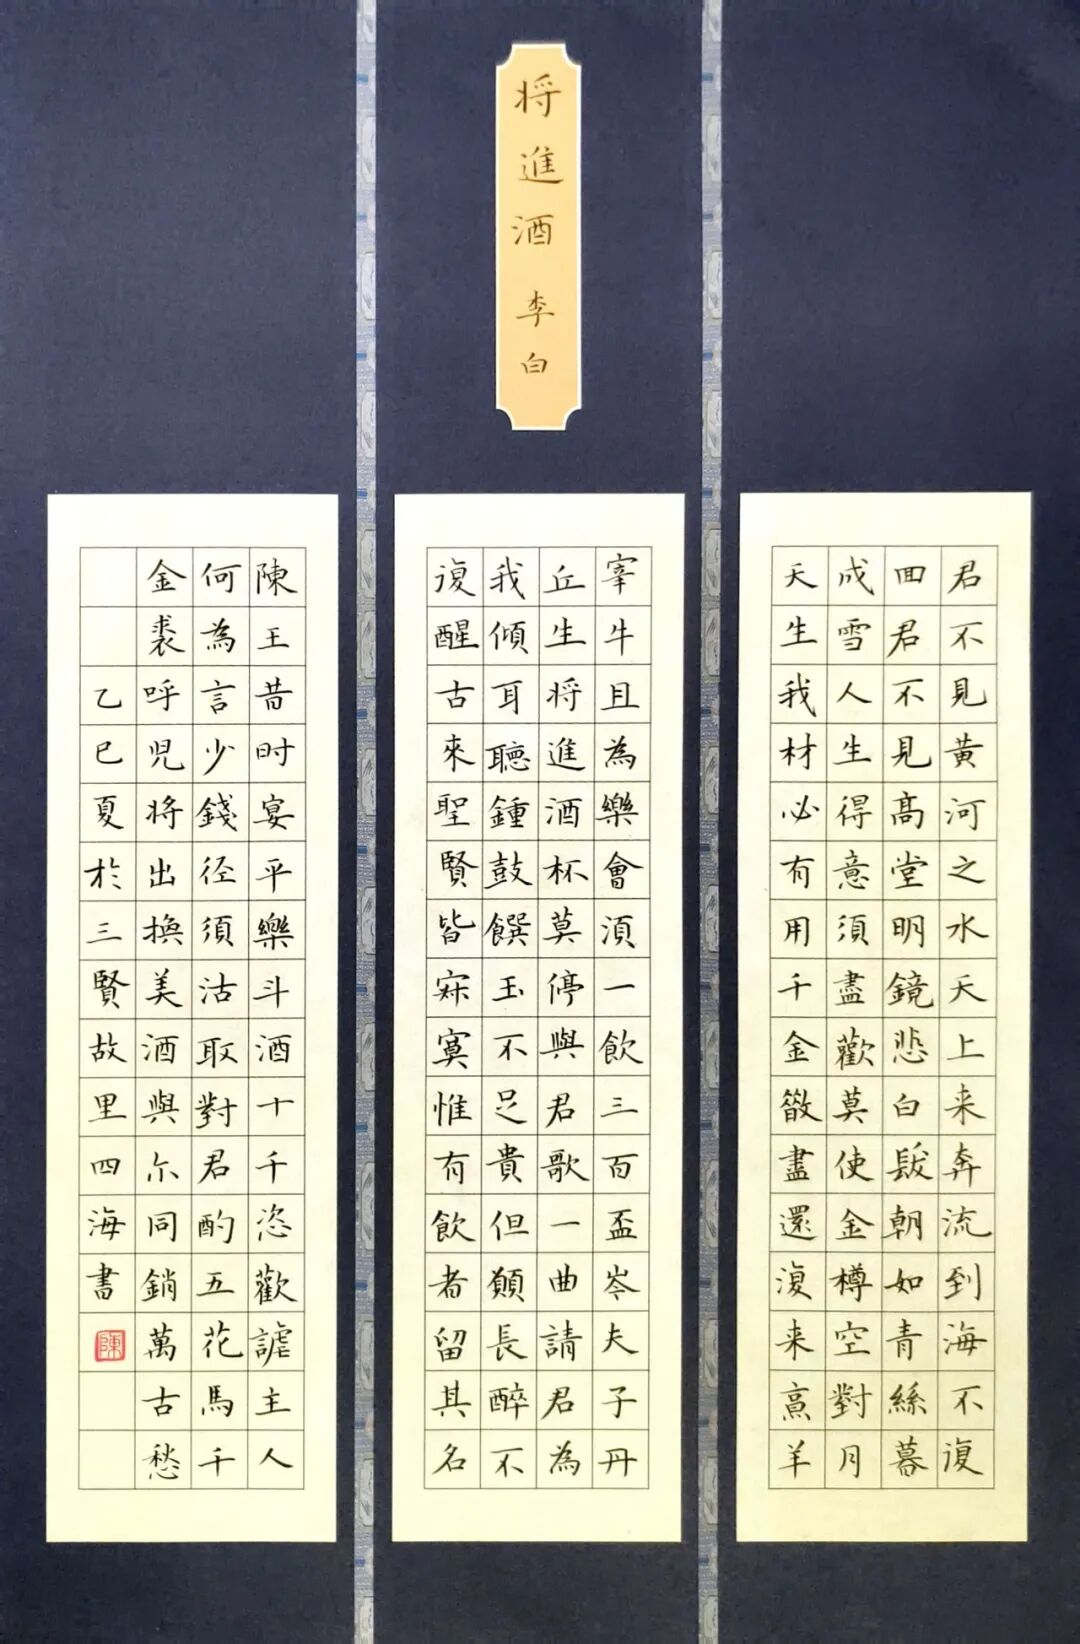 将進酒 李白
君不見黄河之水天上来奔流到海不復
回君不見高堂明鏡悲白髮朝如青絲暮
成雪人生得意須盡歡莫使金樽空對月
天生我材必有用千金散盡還復来烹羊
宰牛且為樂會須一飲三百盃岑夫子丹
丘生将進酒杯莫停與君歌一曲請君為
我傾耳聽鍾鼓饌玉不足貴但願長醉不
復醒古來聖賢皆寂寞惟有飲者留其名
陳王昔时宴平樂斗酒十千恣歡謔主人
何為言少錢径須沽取對君酌五花馬千
金裘呼児将出換美酒與尔同銷萬古愁
乙巳夏於三賢故里四海書
陳